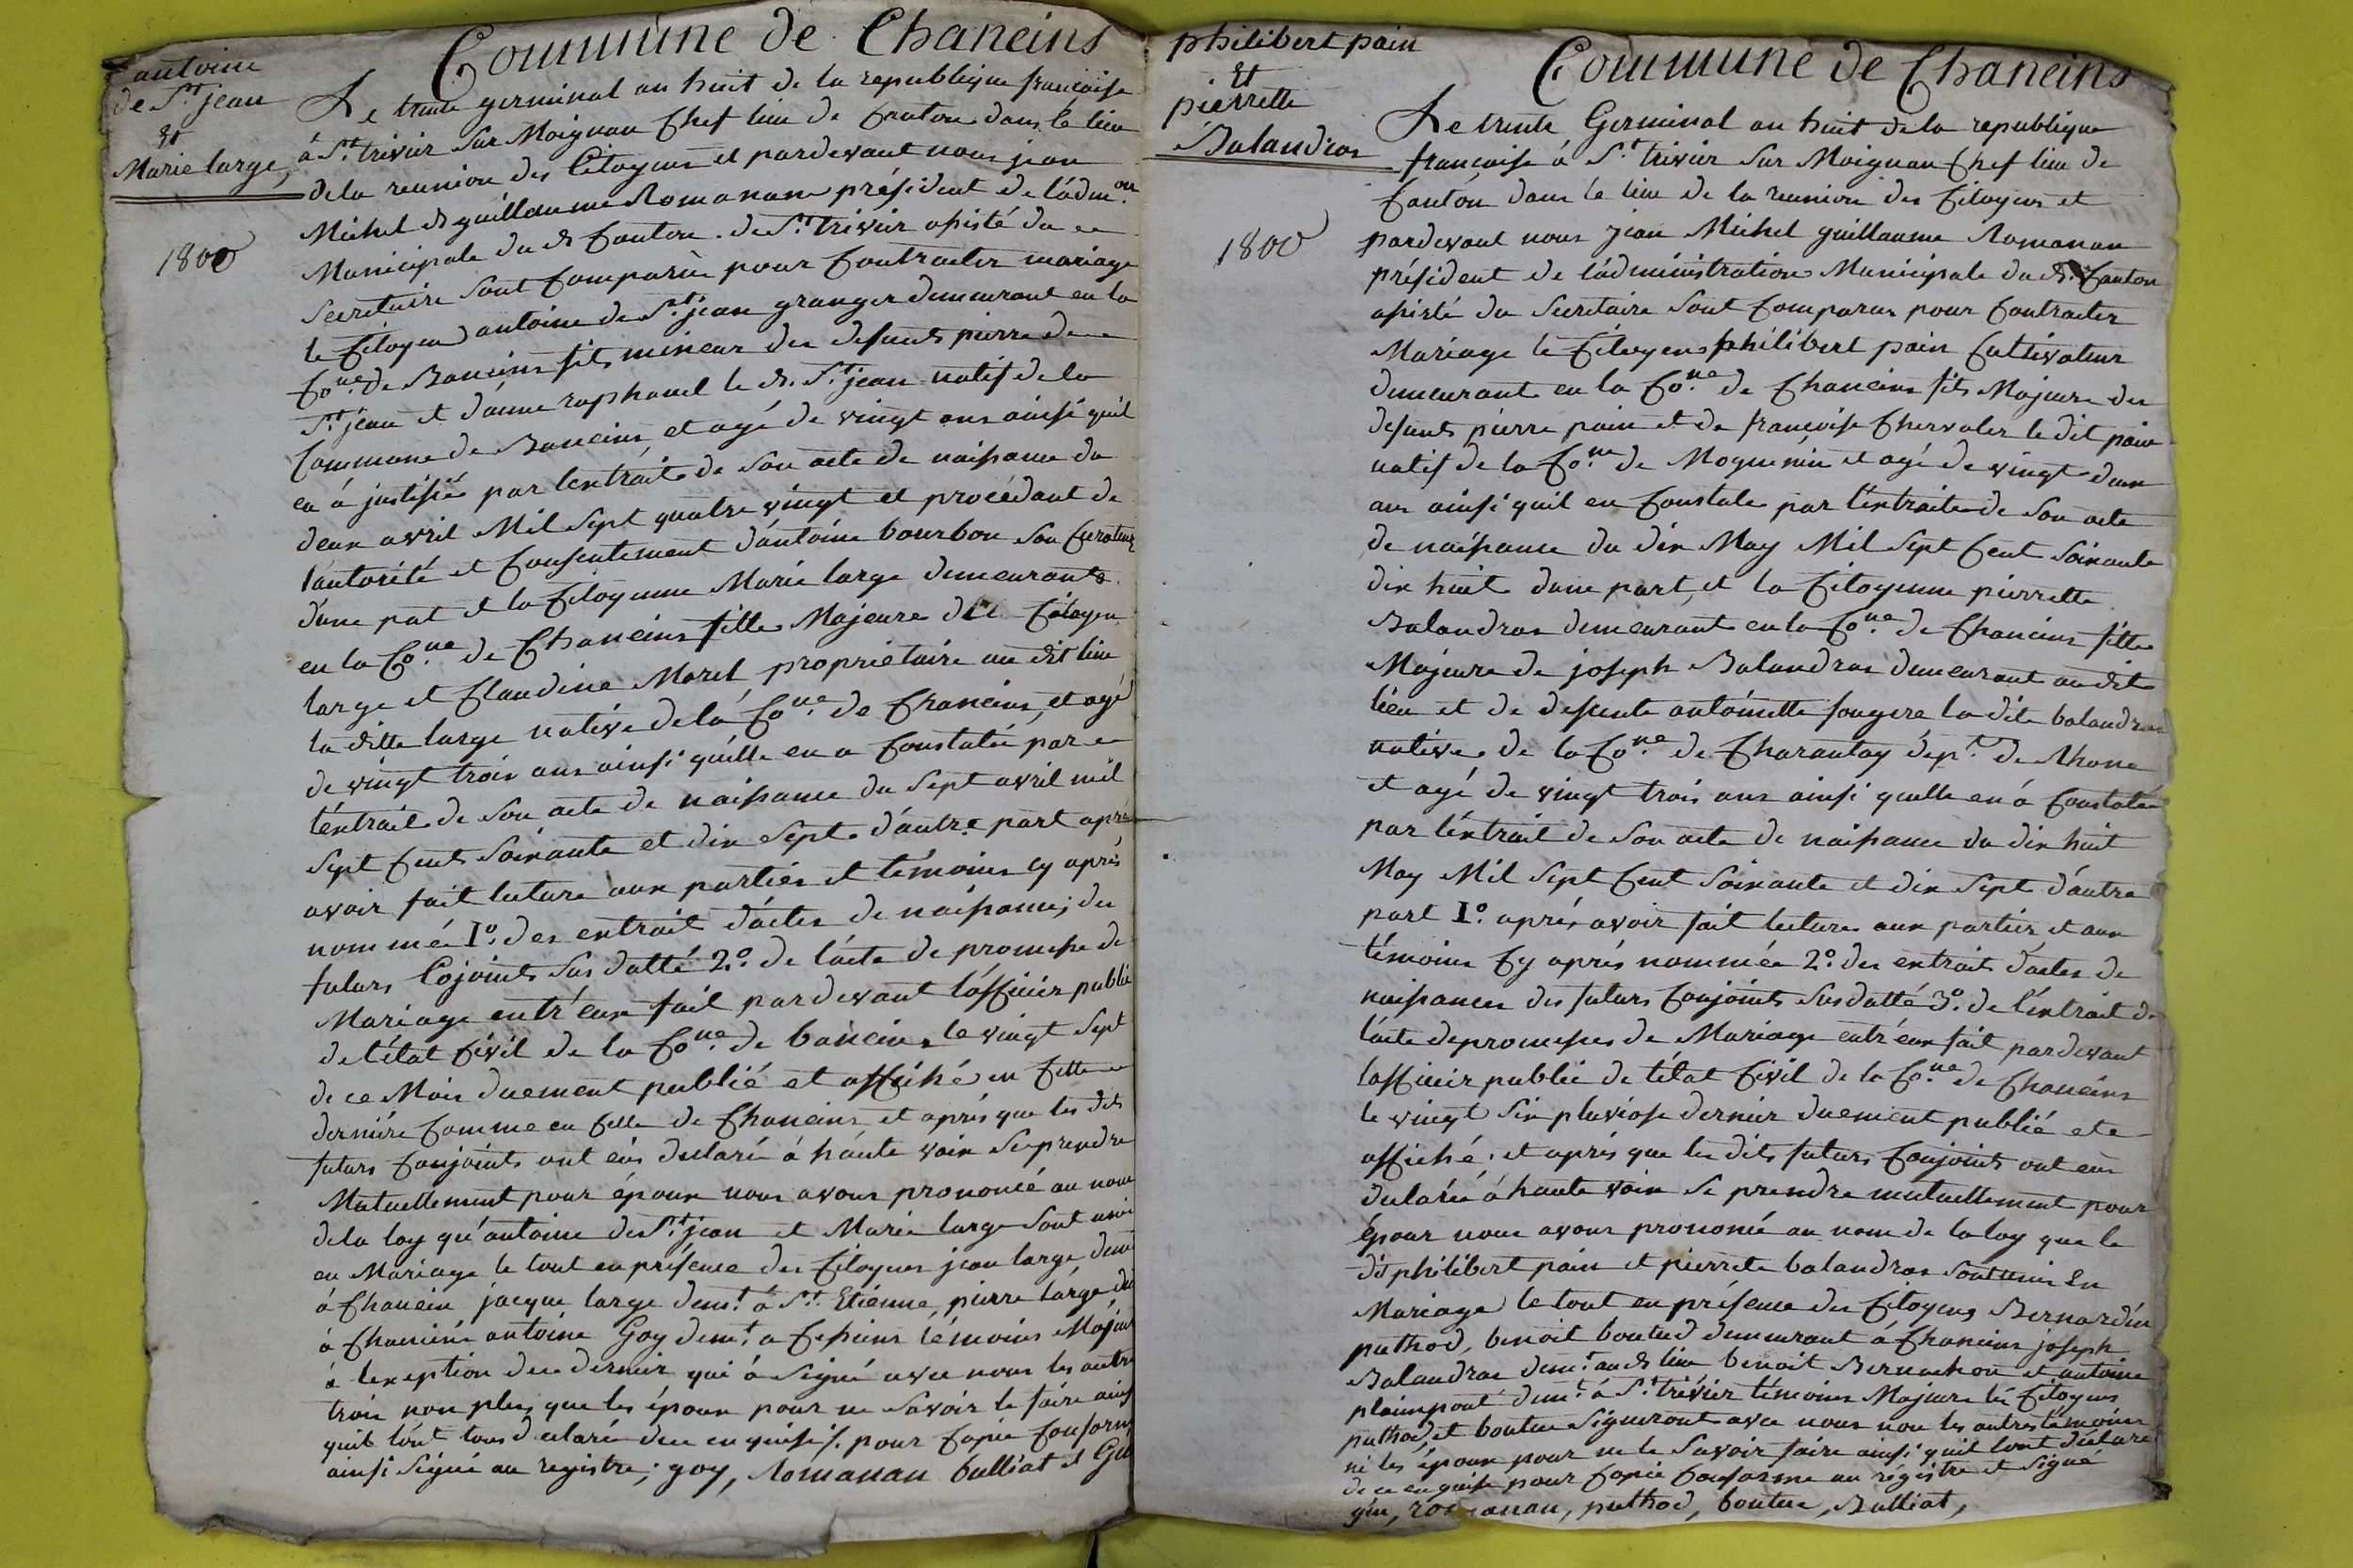 Commune de Chaneins
antoine
de St. jean
Et
Marie large,
1800
Le trente germinal an huit de la republique francaise
à St. trivier sur Moignan Chef lieu de Canton dans le lieu
de la reunion des Citoyens et pardevant nous jean
Michel et guillaume Romanan président de l'adm.on
Municipale du dt Canton de St. trivier assisté du
Secretaire sont Comparu pour Contracter mariage
le Citoyen antoine de St. jean granger demeurant en la
Co.ne de Baneins fils mineur des defunts pierre de
St. jean et d'anne raphanel le dt. St. jean natif de la
Commune de Baneins, et agé de vingt ans ainsi quil
en á justifié par lextrait de son acte de naissance du
deux avril Mil Sept quatre vingt et procédant de
l'autorité et Consentement d'antoine bourbon son Curateur
d'une pat et la Citoyenne Marie large demeurante
en la Co.ne de Chaneins fille Majeure de Citoyen
large et Claudine Morel propriétaire au dit lieu
la ditte large native de la Co.ne de Chaneins, et agé
de vingt trois ans ainsi qu'elle en a Constatée par
l'extrait de son acte de naissance du Sept avril mil
Sept Cent Soixante et dix Sept d'autre part après
avoir fait lecture aux parties et témoins cy après
nommé 1o. des extrait d'actes de naissance; des
futurs Cojoints Sus datté 2o. de l'acte de promesse de
Mariage entr'eux fait pardevant l'officier public
de l'état Civil de la Co.ne de baneins le vingt Sept
de ce Mois duement publié et affiché en Cette
derniére Comme en Celle de Chaneins et après que les dits
futurs Conjoints ont eus declaré á háute voix Se prendre
Mutuellement pour époux nous avons prononcé au nom
de la loy qu'antoine de St. jean et Marie large Sont unis
en Mariage le tout en présence des Citoyens jean large, dem
á Chanein jacque large demt. á St. Etienne, pierre large dem
à Chaneins antoine Goy demt. a Cesseins témoins Majeurs
à lexeption du dernier qui á Signé avec nous les autres
trois non plus que les époux pour ne Savoir le faire ainsi
quils l'ont tous declaré de ce enquis/. pour Copie Conforme
ainsi Signé au registre; goy, Romanan bulliat et Gu
Commune de Chaneins
philibert pain
Et
pierrette
Balandras
1800
Le trente Germinal an huit de la republique
francaise á St. trivier Sur Moignan Chef lieu de
Canton dans le lieu de la reunion des Citoyens et
pardevant nous jean Michel guillaume Romanan
président de l'administration Municipale du dt. Canton
assisté du Secretaire Sont Comparus pour Contracter
Mariage le Citoyen philibert pain Cultivateur
demeurant en la Co.ne de Chaneins fils Majeur des
defunts pierre pain et de françoise Chervaler le dit pain
natif de la Co.ne de Mogneniin et agé de vingt deux
ans ainsi quil en Constate par l'extrait de Son acte
de naissance du dix May Mil Sept Cent Soixante
dix huit dune part, et la Citoyenne pierrette
Balandras demeurant en la Co.ne de Chaneins fille
Majeure de joseph Balandras demeurant au dit
lieu et de defunte antoinette fougere la dite balandras
native de la Co.ne de Charantay dépt. de Rhone
et agé de vingt trois ans ainsi quelle en á Constatée
par l'extrait de Son acte de naissance du dix huit
May Mil Sept Cent Soixante et dix Sept d'autre
part 1o. après avoir fait lecture aux parties et aux
témoins Cy après nommée 2o. des extraits d'actes de
naissances des futurs Conjoints Susdatté 3o. de l'extrait de
l'acte de promesses de Mariage entr'eux fait pardevant
l'officier public de l'état Civil de la Co.ne de Chaneins
le vingt Six pluviose dernier duement publié et
affiché; et après que les dits futurs Conjoints ont eus
declarée á haute voix Se prendre mutuellement pour
Epoux nous avons prononcé au nom de la loy que le
dit philibert pain et pierrete balandras Sont unis En
Mariage le tout en présence des Citoyens Bernardin
puthod, benoit boutud demeurant á Chaneins joseph
Balandras demt. au dt lieu benoit Bernachon et antoine
plainpont demt. á St. trivier témoins Majeurs les Citoyens
puthod, et boutue Signeront avec nous non les autres témoins
ni les époux pour ne le Savoir faire ainsi quil lont declaré
de ce enquis pour Copie Conforme au régistre et Signé
gui, romanan, puthod, boutue, Bulliat,